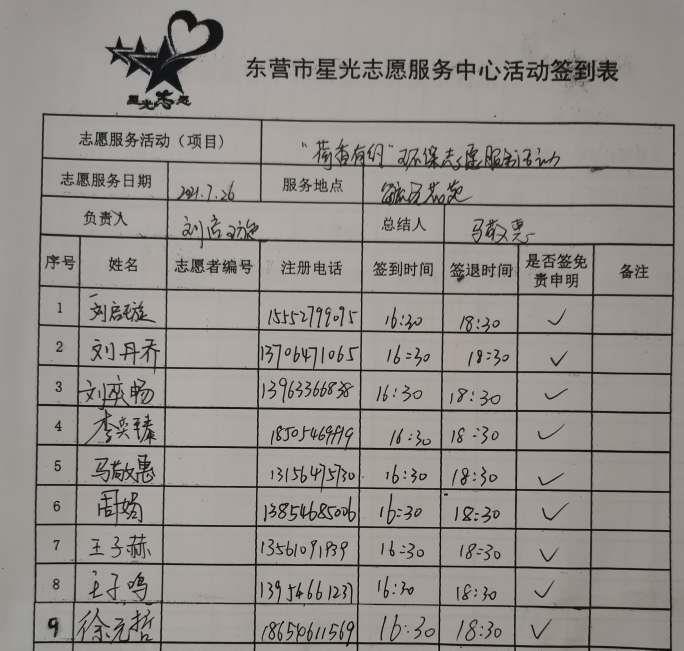 星光志愿
东营市星光志愿服务中心活动签到表
志愿服务活动（项目） "荷香有约"环保志愿服务活动
志愿服务日期 2021.7.26 服务地点
负责人 刘启璇 总结人 马敬惠
序号 姓名 志愿者编号 注册电话 签到时间 签退时间 是否签免责申明 备注
1 刘启璇 15552799095 16:30 18:30 ✓
2 刘丹乔 13706471065 16:30 18:30 ✓
3 刘奕畅 13963366838 16:30 18:30 ✓
4 李奕臻 16:30 18:30 ✓
5 马敬惠 13156475730 16:30 18:30 ✓
6 周娟 13854685006 16:30 18:30 ✓
7 王子赫 13561091939 16:30 18:30 ✓
8 王子鸣 13954661237 16:30 18:30 ✓
9 徐元哲 18654611569 16:30 18:30 ✓